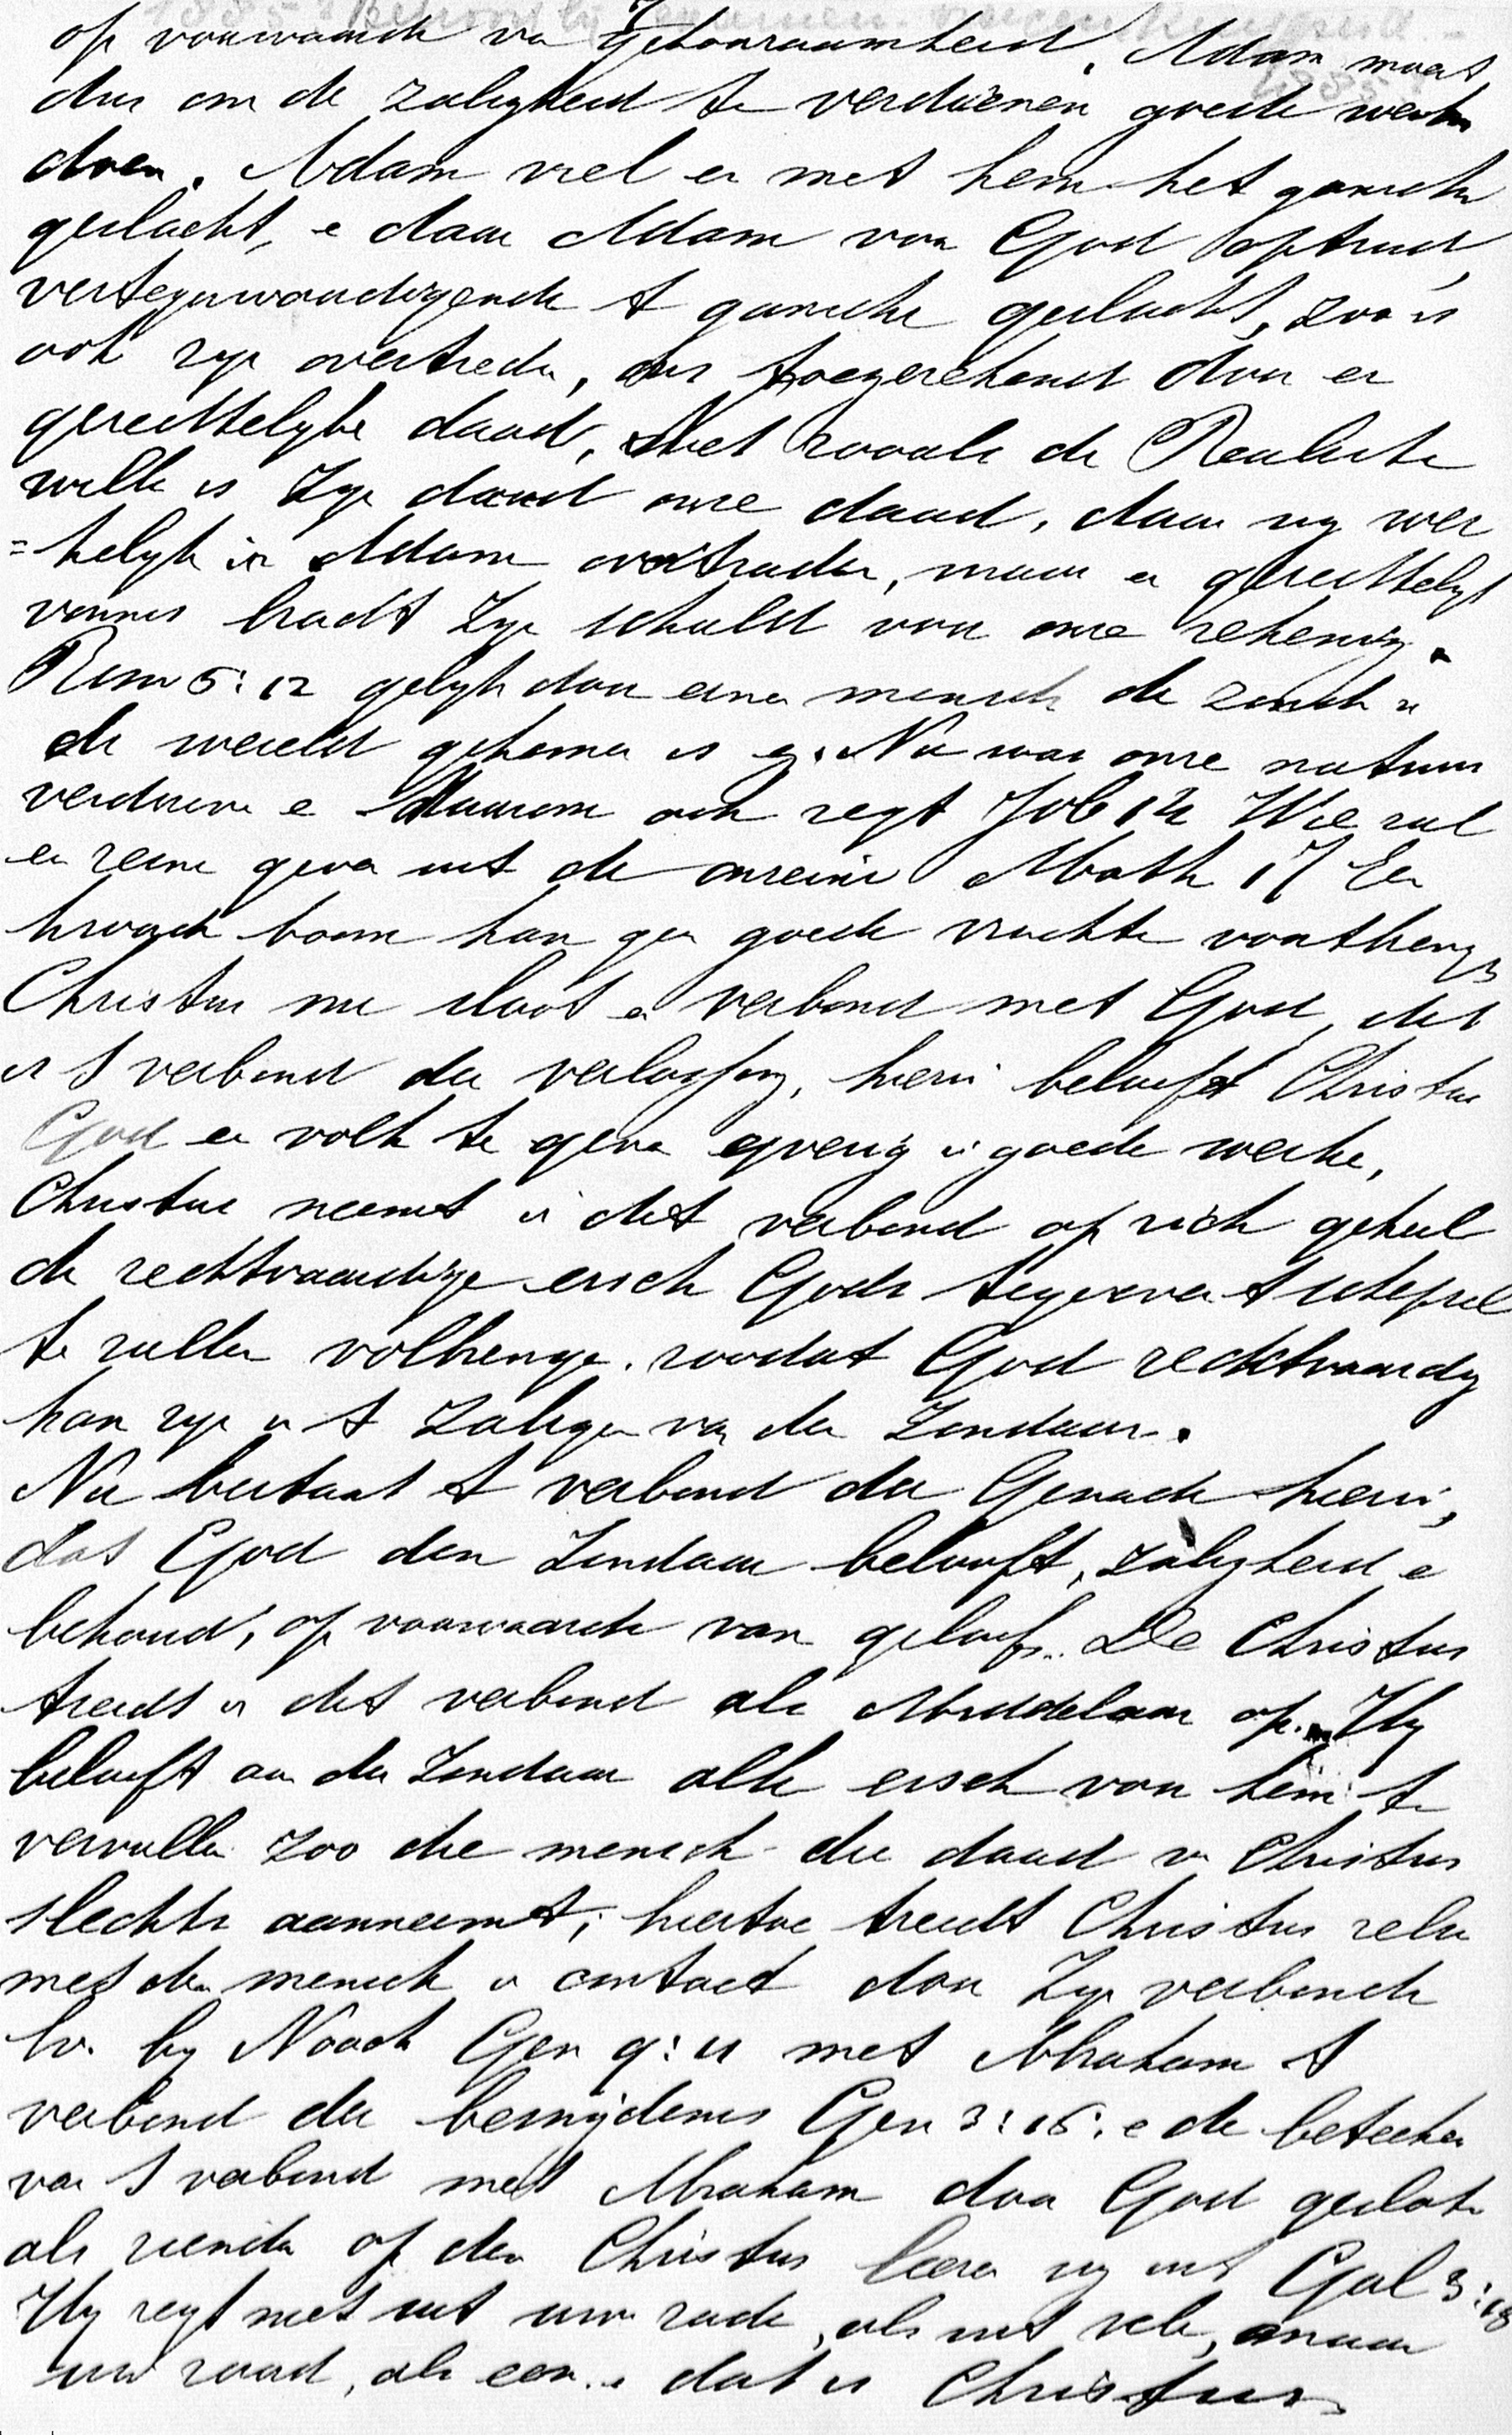 op voorwaarde va Gehoorzaamheid. Adam moest
dus om de zaligheid te verdienen goede werken
doen. Adam viel en met hem het gansche
geslacht, e daar Adam voor God optrad,
vertegenwoordigende t gansche geslacht, zoo is
ook zijn overtreden, ons toegerekend door een
gerechtelijke daad, Niet zooals de Realisten
willen is Zijn daad onze daad, daar wij wer
=kelijk in Adam overtraden, maar een gerechtelijk
vonnis bracht Zijn schuld voor onze rekening.
Rom 5:12 gelijk door eenen mensch de zonde in
de wereld gekomen is e. Nu was onze natuur
verdorven e daarom ook zegt Job 14 Wie zal
een reine geven uit de onreine Math 17 Een
kwade boom kan geen goede vruchten voortbrengen
Christus nu sloot een verbond met God, dit
is t verbond der verlossing, hierin belooft Christus
God een volk te geven ijverig in goede werken,
Christus neemt in dit verbond op zich geheel
de rechtvaardige eisch Gods tegenover t schepsel
te zullen volbrengen. zoodat God rechtvaardig
kan zijn in t Zaligen van den Zondaar.
Nu bestaat t verbond der Genade hierin,
dat God den Zondaar belooft, zaligheid e
behoud, op voorwaarde van geloof. De Christus
treedt in dit verbond als Middelaar op. Hij
belooft aan den Zondaar alle eisch voor hem te
vervullen zoo die mensch die daad v Christus
slechts aanneemt; hiertoe treedt Christus zelve
met den mensch in contact door Zijn verbonde
bv. bij Noach Gen 9:11 met Abraham t
verbond der besnijdenis Gen 3:15. e de beteekenis
van t verbond met Abraham door God gesloten
als ziende op den Christus leeren wij uit Gal 3:18
Hij zegt niet uit uw zade, als uit vele, maar
uw zaad, als een. dat is Christus